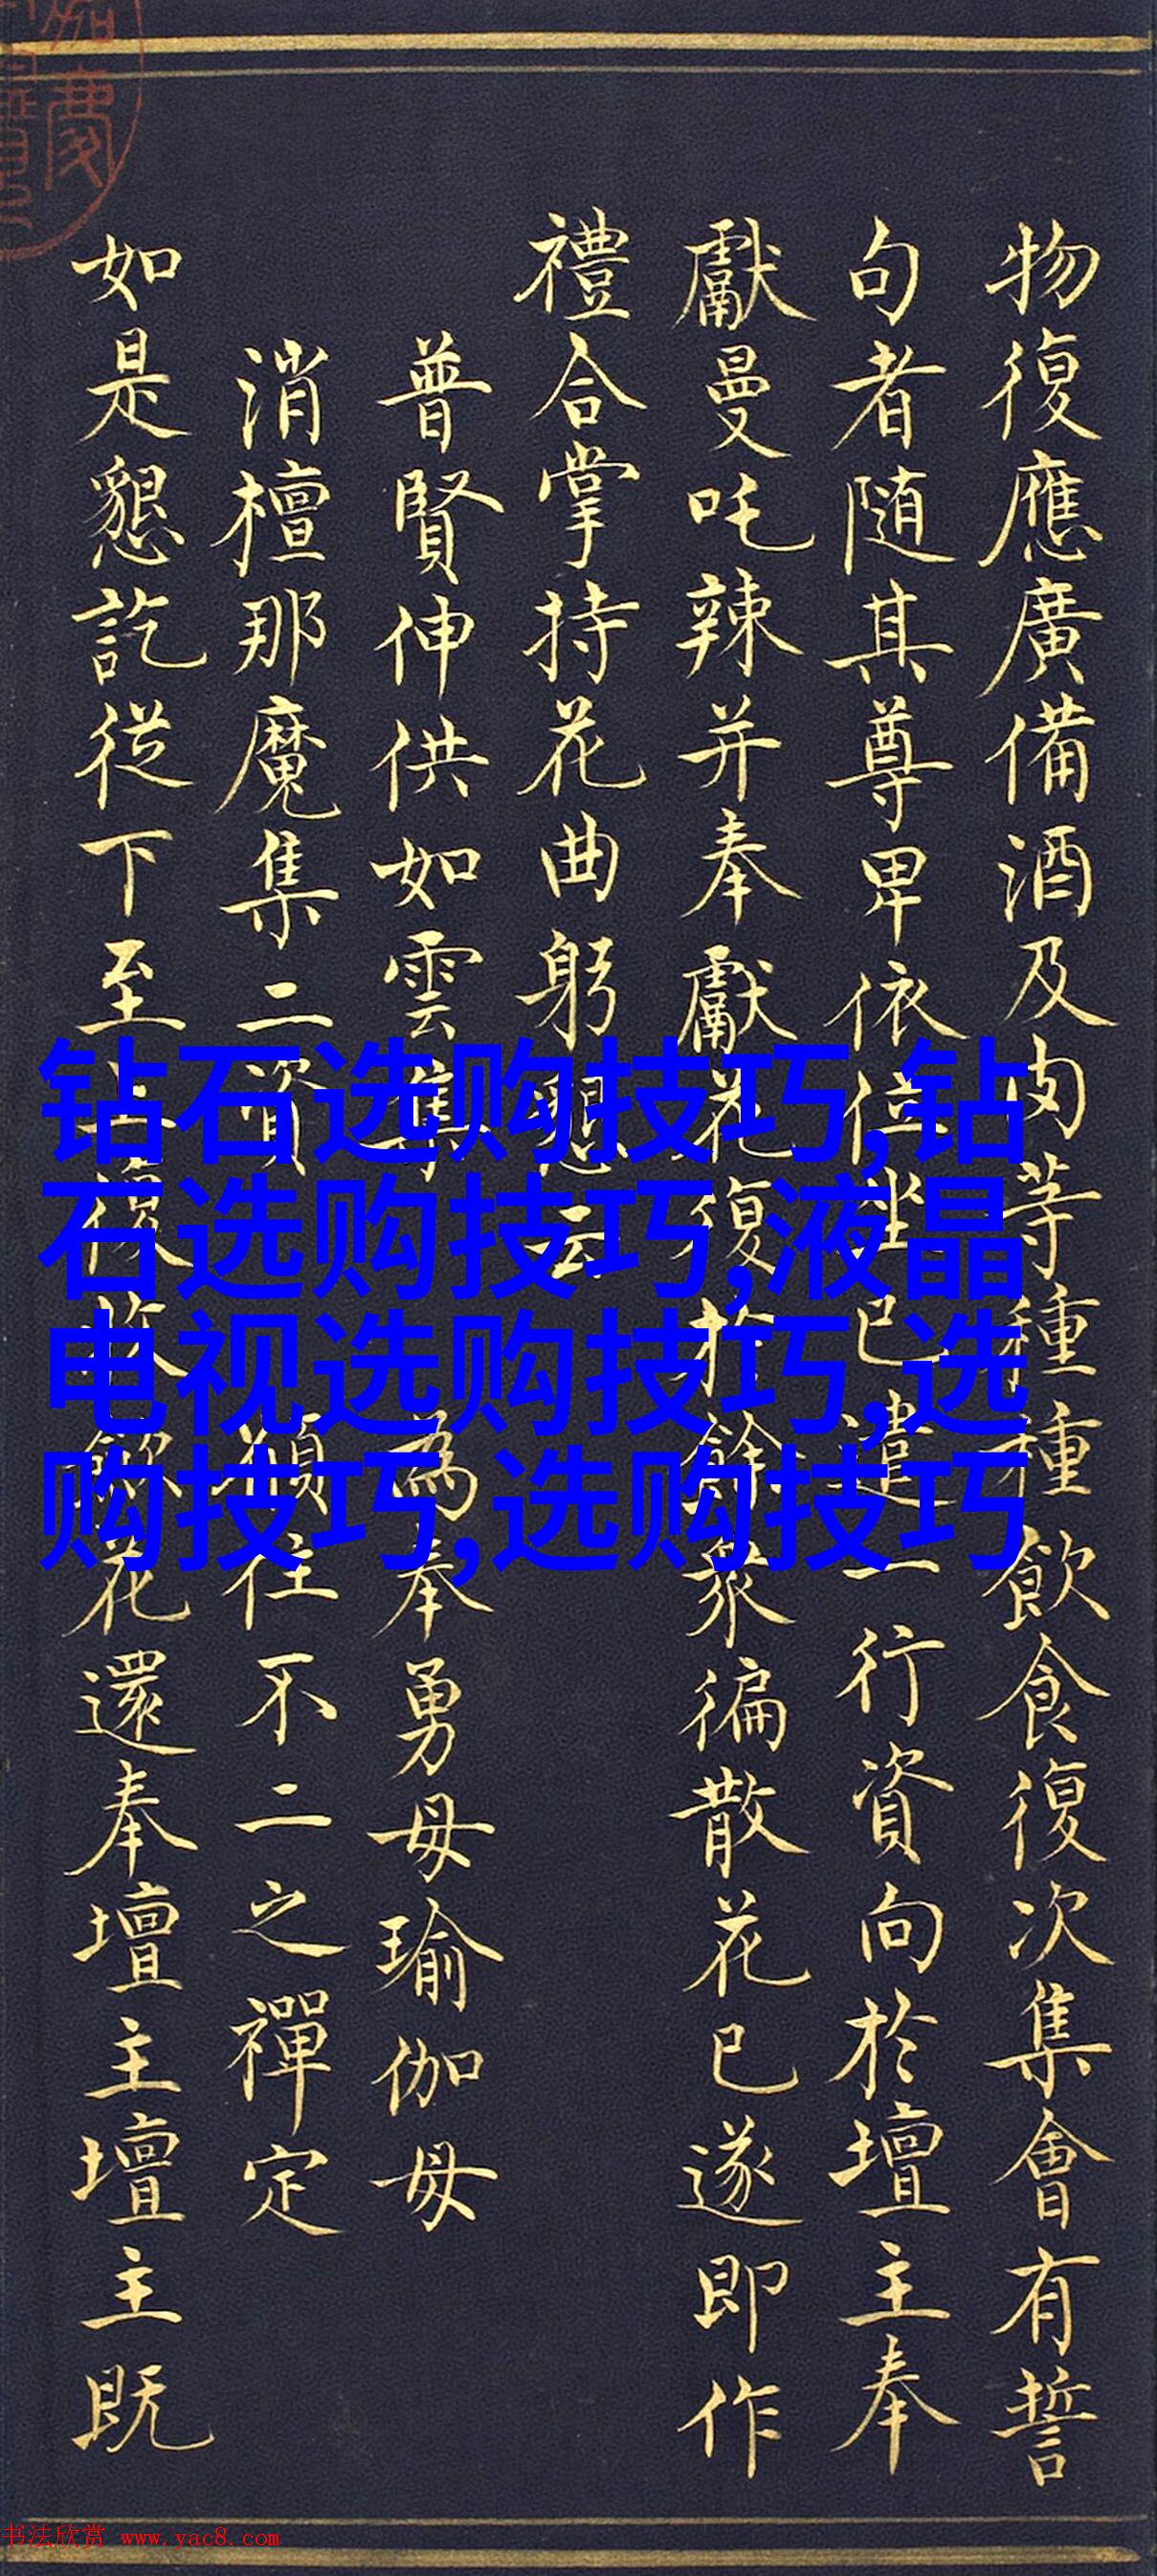 物復應廣備酒及肉等種種飲食復次集會有誓
句者随其尊卑依位坐已遣一行資向於壇主奉
獻曼吒辣并奉獻花復於餘衆徧散花已遂即作
禮合掌持花曲躬懇云
普賢伸供如雲集 為奉勇母瑜伽母
消檀那魔集二資 願往不二之禪定
如是懇訖從下至上花還奉壇主壇主既
钻石选购技巧,钻
石选购技巧,液晶
电视选购技巧,选
购技巧,选购技巧
书法欣赏 www.yac8.com